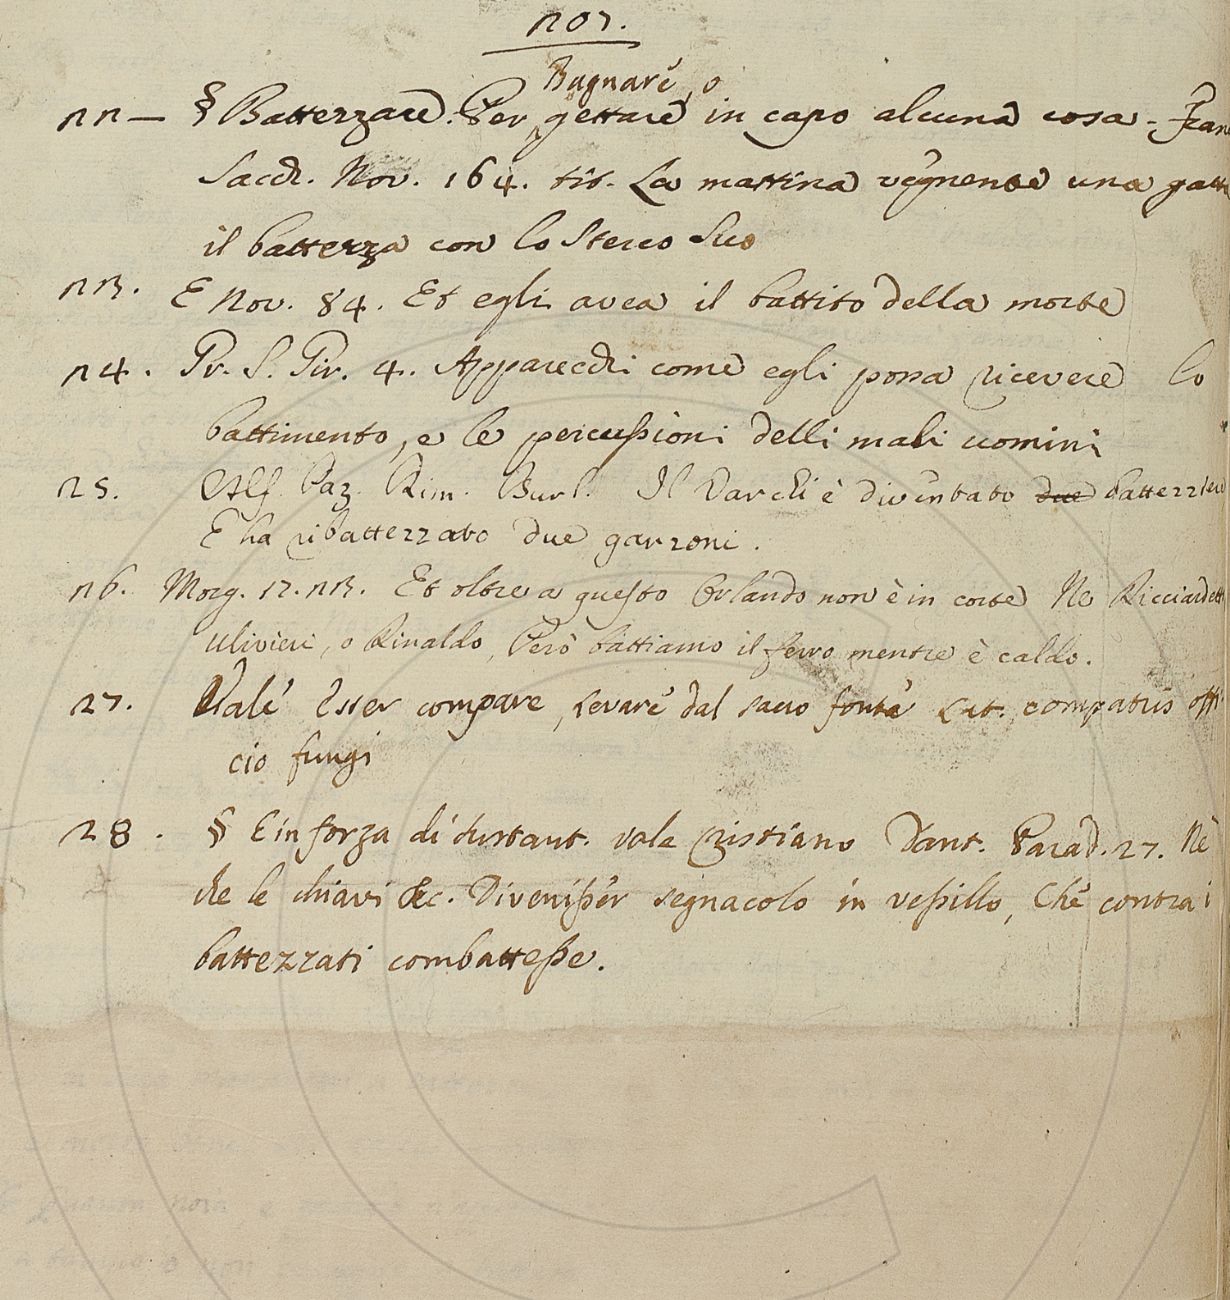 207.
Bagnare, o
22 — § Battezzare. Per gettare in capo alcuna cosa - Fran
Sacch. Nov. 164. tit. La mattina vegnente una gatta
il battezza con lo sterco suo
23. E Nov. 84. Et egli avea il battito della morte
24. Pr. S. Gir. 4. Apparecchi come egli possa ricevere lo
battimento, e le percussioni delli mali uomini
25. Alf. Paz. Rim. Burl. Il Varchi è diventato due battezziere
E ha ribattezzato due garzoni.
26. Morg. 17. 23. Et oltre a questo Orlando non è in corte Ne Ricciardetto
Ulivieri, o Rinaldo, Però battiamo il ferro mentre è caldo.
27. Vale Esser compare, Levare dal sacro fonte Lat. compatris offi
cio fungi
28. § E in forza di sustant. vale Cristiano Dant. Parad. 27. Nè
che le chiavi &c. Divenisser segnacolo in vessillo, Che contra i
battezzati combattesse.